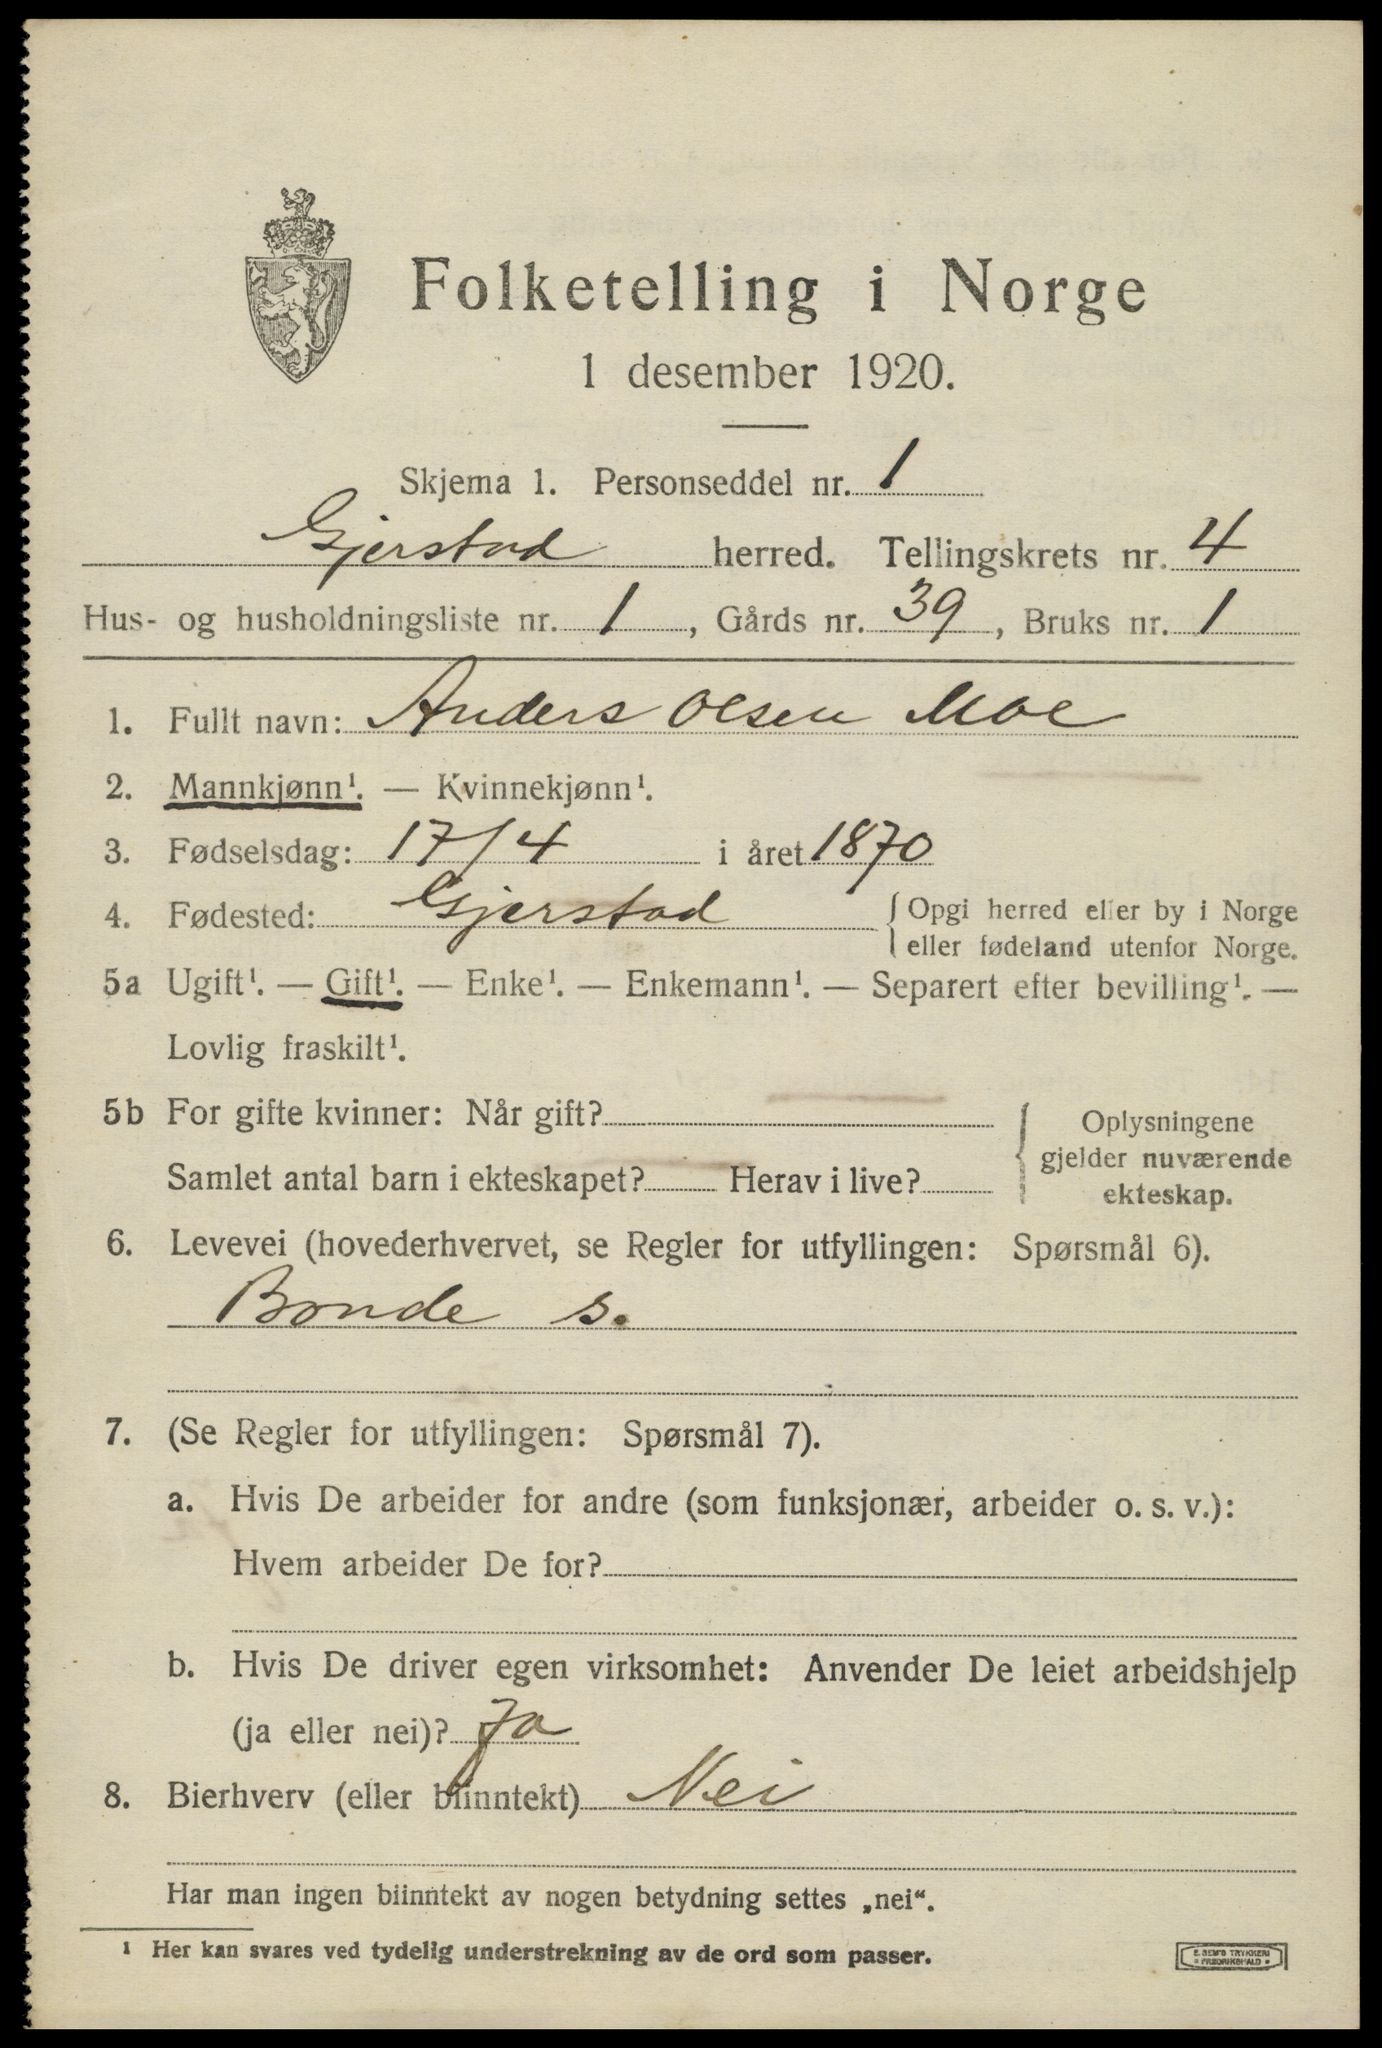 Folketelling i Norge
1 desember 1920.
Skjema 1. Personseddel nr. 1
Gjerstad herred. Tellingskrets nr. 4
Hus- og husholdningsliste nr. 1, Gårds nr. 39, Bruks nr. 1
1. Fullt navn: Anders Olsen Moe
2. Mannkjønn¹. — Kvinnekjønn¹.
3. Fødselsdag: 17/4 i året 1870
4. Fødested: Gjerstad { Opgi herred eller by i Norge
eller fødeland utenfor Norge.
5a Ugift¹. — Gift¹. — Enke¹. — Enkemann¹. — Separert efter bevilling¹. —
Lovlig fraskilt¹.
5b For gifte kvinner: Når gift? { Oplysningene
gjelder nuværende
Samlet antal barn i ekteskapet? Herav i live? ekteskap.
6. Levevei (hovederhvervet, se Regler for utfyllingen: Spørsmål 6).
Bonde s.
7. (Se Regler for utfyllingen: Spørsmål 7).
a. Hvis De arbeider for andre (som funksjonær, arbeider o. s. v.):
Hvem arbeider De for?
b. Hvis De driver egen virksomhet: Anvender De leiet arbeidshjelp
(ja eller nei)? Ja
8. Bierhverv (eller biinntekt) Nei
Har man ingen biinntekt av nogen betydning settes „nei“.
¹ Her kan svares ved tydelig understrekning av de ord som passer.
E. SEM'S TRYKKERI
* FREDRIKSHALD *